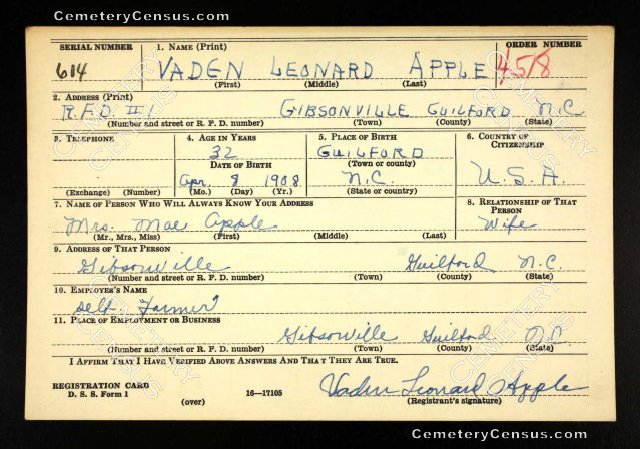 CemeteryCensus.com
SERIAL NUMBER 1. NAME (Print) ORDER NUMBER
614 VADEN LEONARD APPLE 4518
(First) (Middle) (Last)
2. ADDRESS (Print)
R.F.D. #1 GIBSONVILLE GUILFORD N.C.
(Number and street or R. F. D. number) (Town) (County) (State)
3. TELEPHONE 4. AGE IN YEARS 5. PLACE OF BIRTH 6. COUNTRY OF CITIZENSHIP
32 GUILFORD
DATE OF BIRTH (Town or county)
Apr. 8 1908 N.C. U.S.A.
(Exchange) (Number) (Mo.) (Day) (Yr.) (State or country)
7. NAME OF PERSON WHO WILL ALWAYS KNOW YOUR ADDRESS 8. RELATIONSHIP OF THAT PERSON
Mrs. Mae Apple Wife
(Mr., Mrs., Miss) (First) (Middle) (Last)
9. ADDRESS OF THAT PERSON
Gibsonville Guilford N.C.
(Number and street or R. F. D. number) (Town) (County) (State)
10. EMPLOYER'S NAME
Self Farmer
11. PLACE OF EMPLOYMENT OR BUSINESS
Gibsonville Guilford N.C.
(Number and street or R. F. D. number) (Town) (County) (State)
I AFFIRM THAT I HAVE VERIFIED ABOVE ANSWERS AND THAT THEY ARE TRUE.
REGISTRATION CARD Vaden Leonard Apple
D. S. S. Form 1 (over) 16—17105 (Registrant's signature)
CemeteryCensus.com